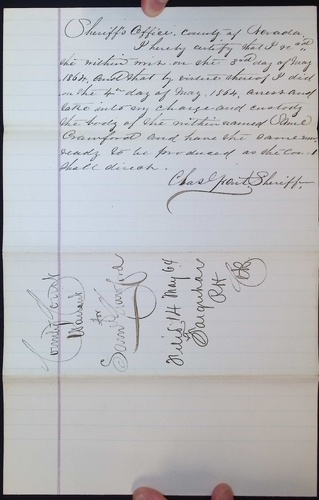 Sheriff's Office, County of Nevada.
I hereby certify that I rec'd
the within writ on the 3rd day of May
1864, and that by virtue thereof I did
on the 4th day of May, 1864, arrest and
take into my charge and custody
the body of the within named Saml
Crawford and have the same now
ready to be produced as the Court
shall direct.
Sheriff.
County Court
Warrant
for
Sam Crawford
Filed 14 May 64
Farquhar